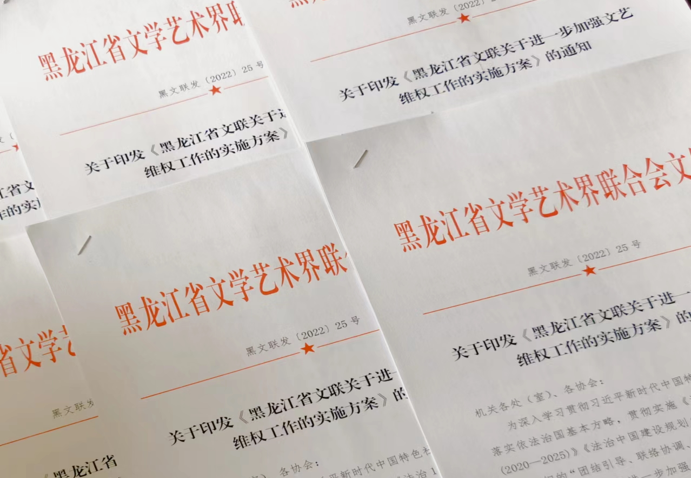 黑龙江省文学艺术界
黑文联发〔2022〕25 号
关于印发《黑龙江省文联关于
维权工作的实施方案》
黑文联发〔2022〕25 号
关于印发《黑龙江省文联关于进一步加强文艺
维权工作的实施方案》的通知
省文
的实
黑龙江省文学艺术界联
黑文联发〔2022〕25 号
关于印发《黑龙江省文联关于进一
维权工作的实施方案》的
各协会：
平新时代中国特色
黑龙江省文学艺术界联合会文
黑文联发〔2022〕25 号
关于印发《黑龙江省文联关于进一
维权工作的实施方案》的
机关各处（室）、各协会：
为深入学习贯彻习近平新时代中国特
落实依法治国基本方略，贯彻实施《
(2020—2025)》《法治中国建设规划
的“团结引导、联络协调、
省文学艺
黑文联发
关于印发《黑龙江省
维权工作的